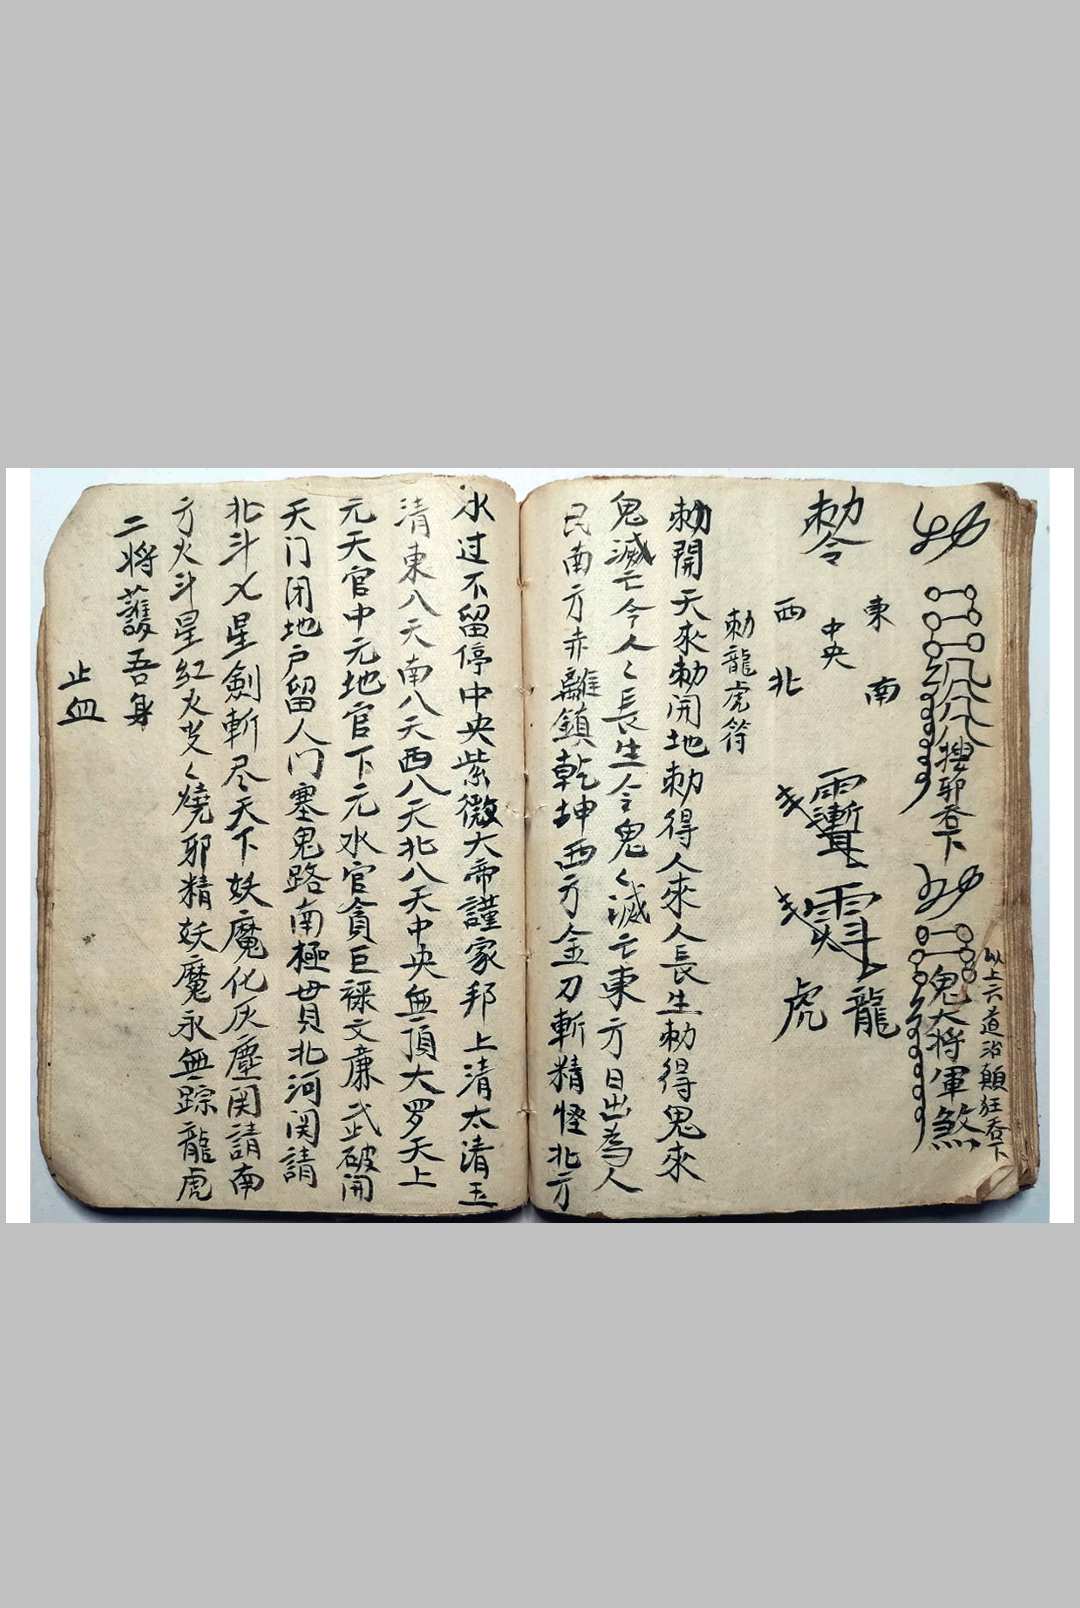 以上六道治顛狂吞下
鬼大将軍煞
邪吞下
東 南
中央
西 北
勅令
龍
虎
勅龍虎符
勅開天來勅闭地勅得人來人長生勅得鬼來
鬼滅亡令人〻長生令鬼〻滅亡東方日出為人
民南方赤離鎮乾坤西方金刀斬精怪北方
水过不留停中央紫微大帝謹家邦上清太清玉
清東八天南八天西八天北八天中央無頂大罗天上
元天官中元地官下元水官貪巨祿文廉武破開
天门闭地户留人门塞鬼路南極貫北河関請
北斗七星劍斬尽天下妖魔化灰塵関請南
方火斗星紅火〻燒邪精妖魔永無踪龍虎
二将護吾身
止血